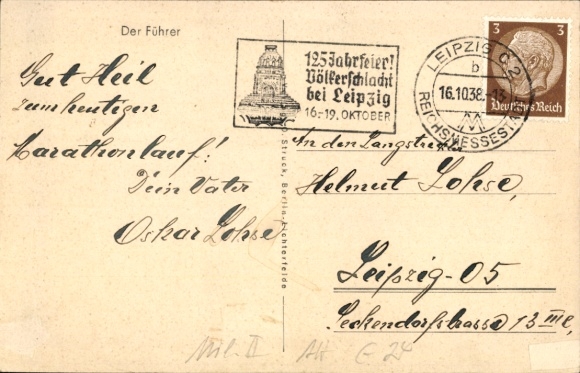 Der Führer
Gut Heil
zum heutigen
Marathonlauf!
Dein Vater
Oskar Lohse
125 Jahrfeier!
Völkerschlacht
bei Leipzig
16.-19. OKTOBER
LEIPZIG C2
b
16.10.38.-13
REICHSMESSESTADT
3 3
Deutsches Reich
O. Struck, Berlin-Lichterfelde
An den Langstreckler
Helmut Lohse,
Leipzig-O5
Seckendorfstrasse 13 III l,
Mil. II
AH
G 24